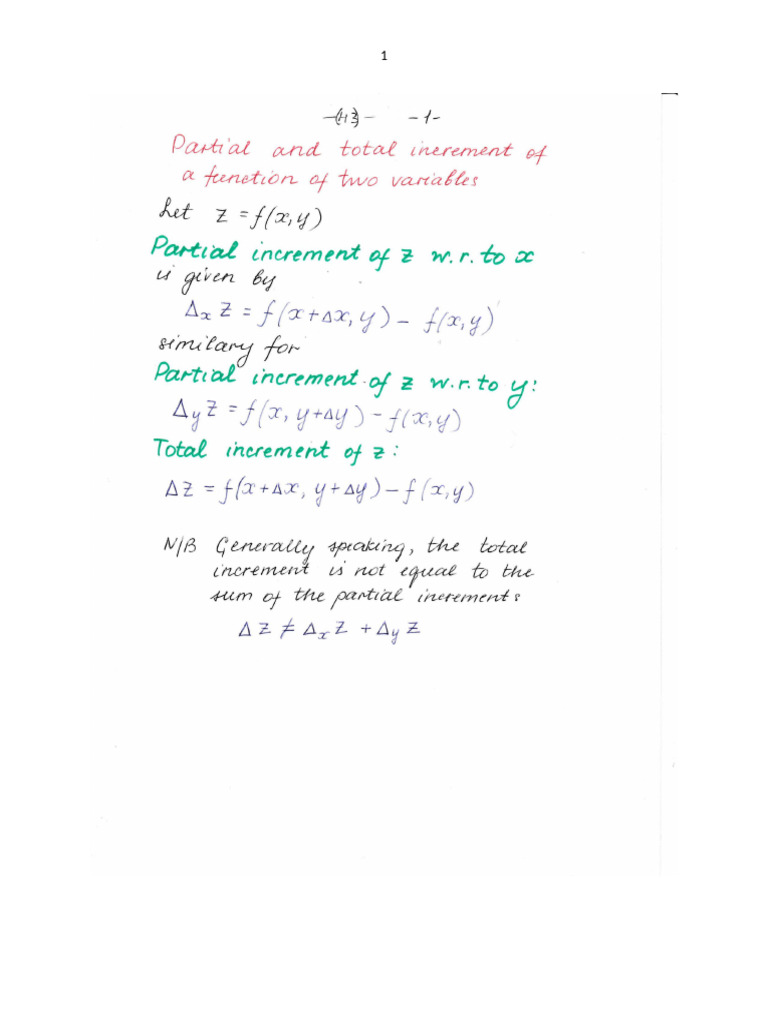 1
-1-
Partial and total increment of
a function of two variables
Let z = f(x, y)
Partial increment of z w.r.to x
is given by
Δₓ z = f(x+Δx, y) – f(x, y)
similary for
Partial increment of z w.r.to y:
Δy z = f(x, y+Δy) – f(x, y)
Total increment of z:
Δz = f(x+Δx, y+Δy) – f(x, y)
N/B Generally speaking, the total
increment is not equal to the
sum of the partial increments
Δz ≠ Δₓ z + Δy z